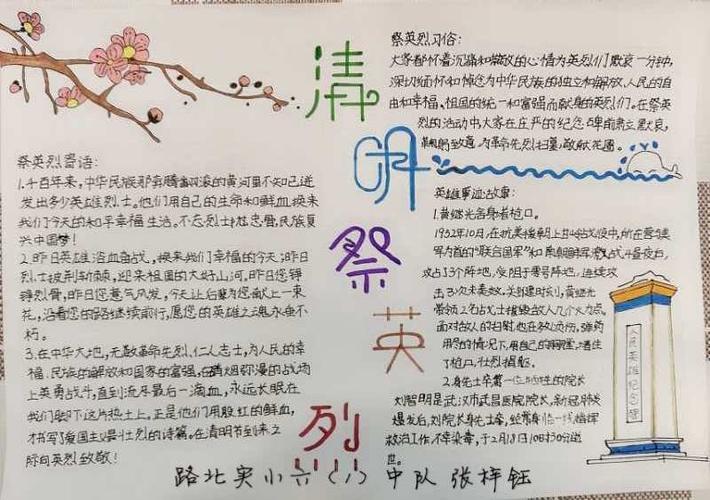 清明祭英烈
祭英烈寄语:
1.千百年来,中华民族那奔腾翻滚的黄河里不知已迸
发出多少英雄烈士。他们用自己的生命和鲜血换来
我们今天的和平幸福生活。不忘烈士壮志骨,民族复
兴中国梦!
2.昨日英雄浴血奋战,换来我们幸福的今天;昨日
烈士披荆斩棘,迎来祖国的大好山河。昨日您铮
铮烈骨,昨日您意气风发,今天让后辈为您献上一束
花,沿着您的路继续前行,愿您的英雄之魂永垂不
朽。
3.在中华大地,无数革命先烈、仁人志士,为人民的幸
福、民族的解放和国家的富强,在硝烟弥漫的战场
上英勇战斗,直到流尽最后一滴血,永远长眠在
我们脚下这片热土上。正是他们用殷红的鲜血,
才书写了爱国主义最壮烈的诗篇。在清明节到来之
际向英烈致敬!
祭英烈习俗:
大家都怀着沉痛和崇敬的心情为英烈们默哀一分钟,
深切缅怀和悼念为中华民族的独立和解放、人民的自
由和幸福、祖国的统一和富强而献身的英烈们。在祭英
烈的活动中大家在庄严的纪念碑前肃立默哀,
鞠躬致意,为革命先烈扫墓,敬献花圈。
英雄事迹故事:
1.黄继光舍身堵枪口。
1952年10月,在抗美援朝上甘岭战役中,所在营与美
军为首的“联合国军”和南朝鲜军激战4昼夜后,
攻占3个阵地,受阻于零号阵地,连续攻
击3次未奏效。关键时刻,黄继光
带领2名战士摧毁敌人几个火力点。
面对敌人的扫射,他在多处负伤,弹药
用尽的情况下,用自己的胸膛,堵住
了枪口,壮烈捐躯。
2.身先士卒第一位牺牲的院长
刘智明是武汉市武昌医院院长,新冠肺炎
爆发后,刘院长身先士卒,经常身临一线指挥
救治工作,不幸染毒,于2月18日10时30分逝
世。
人民英雄纪念碑
路北实小六(八)中队 张梓钰